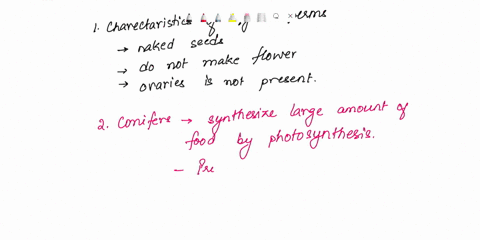 1. Charectaristics
→ naked seeds
→ do not make flower
→ ovaries is not present.
2. Conifers → synthesize large amount of
food by photosynthesis.
- Pre